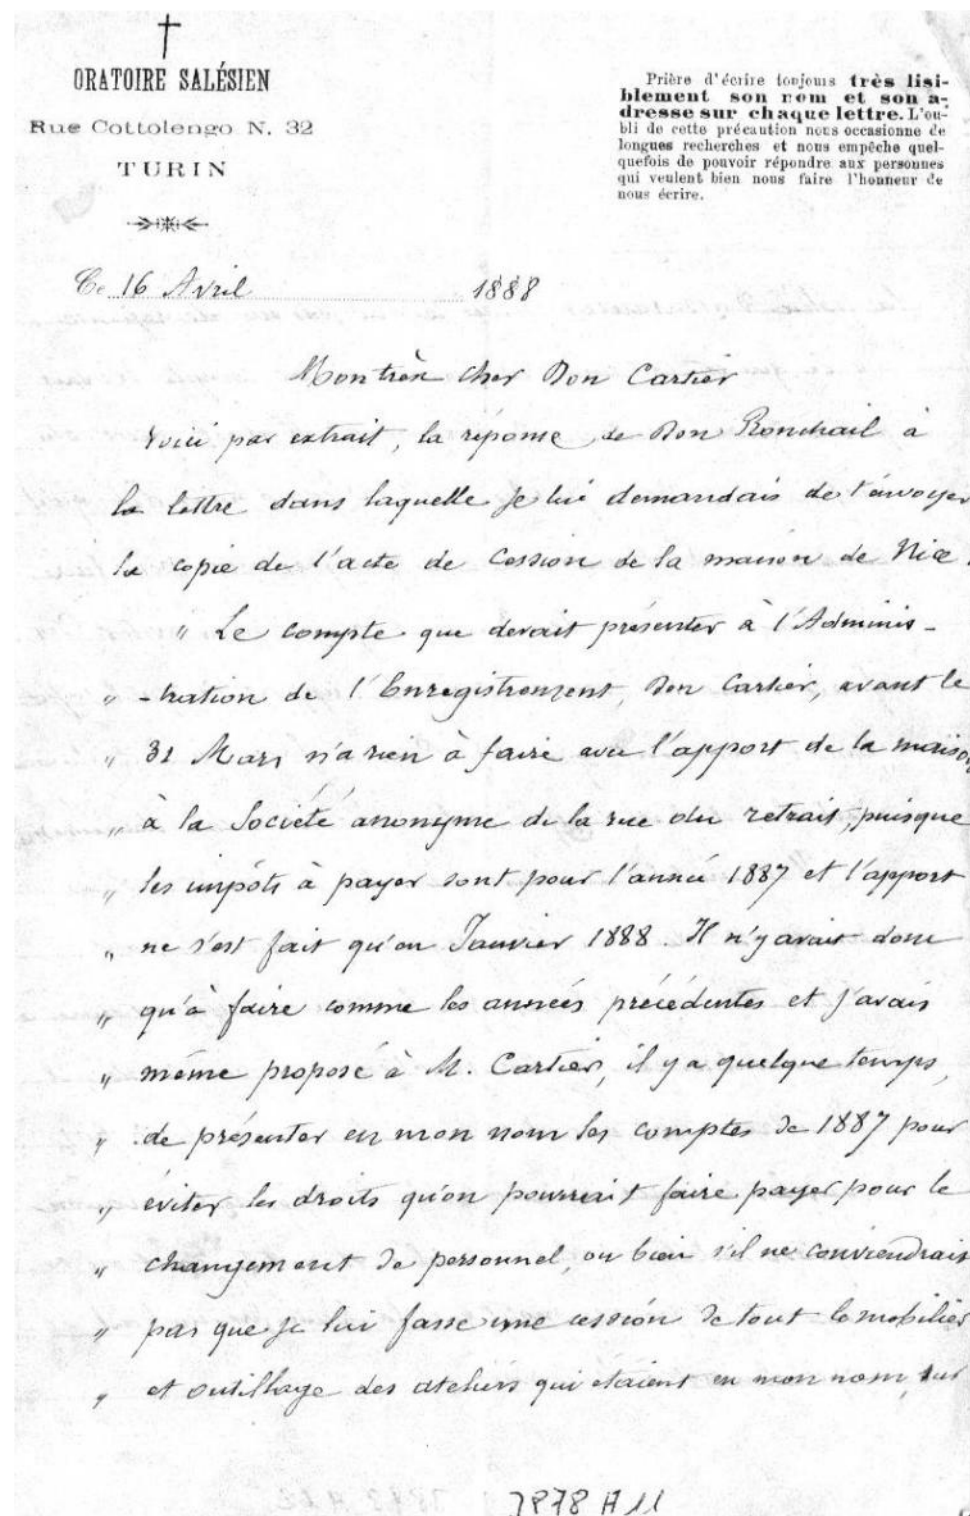 ORATOIRE SALÉSIEN
Rue Cottolengo N. 32
TURIN
Prière d'écrire toujours très lisi-
blement son nom et son a-
dresse sur chaque lettre. L'ou-
bli de cette précaution nous occasionne de
longues recherches et nous empêche quel-
quefois de pouvoir répondre aux personnes
qui veulent bien nous faire l'honneur de
nous écrire.
Ce 16 Avril 1888
Mon très cher Don Cartier
Voici par extrait, la réponse de Don Ronchail à
la lettre dans laquelle je lui demandais de t'envoyer
la copie de l'acte de Cession de la maison de Nice.
" Le compte que devait présenter à l'Adminis-
" -tration de l'Enregistrement, Don Cartier, avant le
" 31 Mars n'a rien à faire avec l'apport de la maison
" à la Société anonyme de la rue du retrait, puisque
" les impôts à payer sont pour l'année 1887 et l'apport
" ne s'est fait qu'en Janvier 1888. Il n'y avait donc
" qu'à faire comme les années précédentes et j'avais
" même proposé à M. Cartier, il y a quelque temps,
" de présenter en mon nom les comptes de 1887 pour
" éviter les droits qu'on pourrait faire payer pour le
" changement de personnel, ou bien s'il ne conviendrait
" pas que je lui fasse une cession de tout le mobilier
" et outillage des ateliers qui étaient en mon nom, sur
3878 A 11